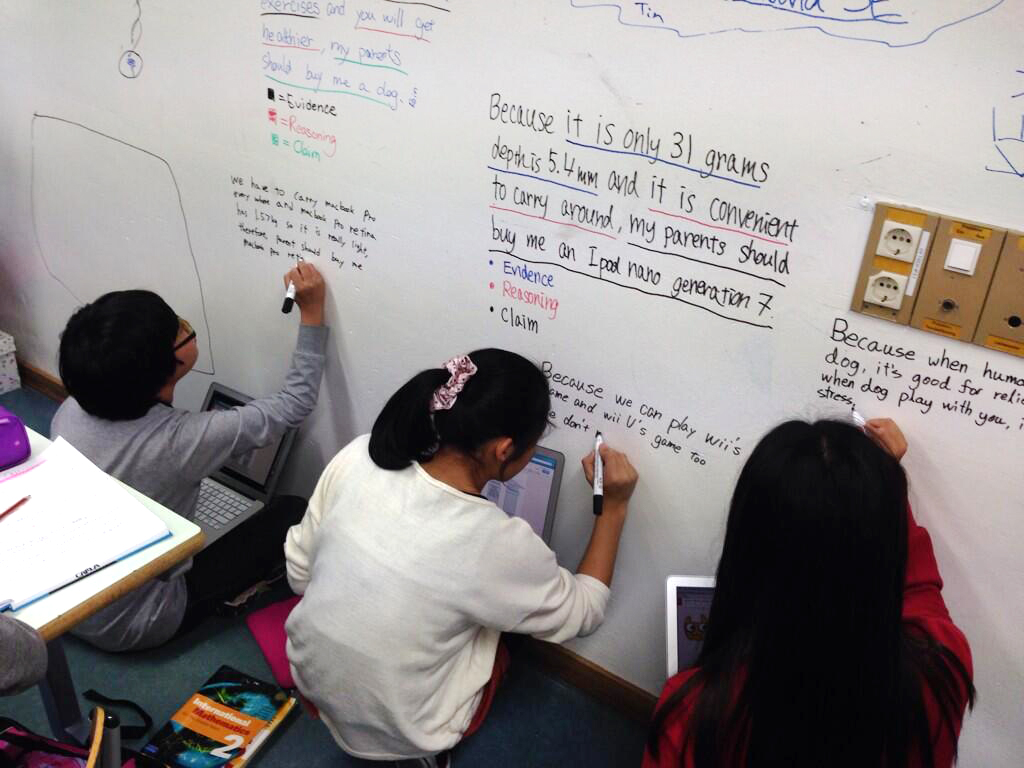 exercises and you will get
healthier, my parents
should buy me a dog.
= Evidence
= Reasoning
= Claim
Tim
We have to carry macbook pro
every where and macbook pro retina
has 1.57kg so it is really light,
therefore, parent should buy me
macbook pro
Because it is only 31 grams
depth is 5.4mm and it is convenient
to carry around, my parents should
buy me an Ipod nano generation 7.
• Evidence
• Reasoning
• Claim
Because we can play wii's
game and wii U's game too
don't
Because when huma
dog, it's good for relie
when dog play with you, i
stress,
International
Mathematics
2